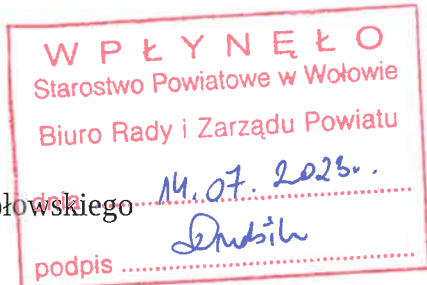 W P Ł Y N Ę Ł O
Starostwo Powiatowe w Wołowie
Biuro Rady i Zarządu Powiatu
dnia 14.07.2023r.
owskiego
podpis